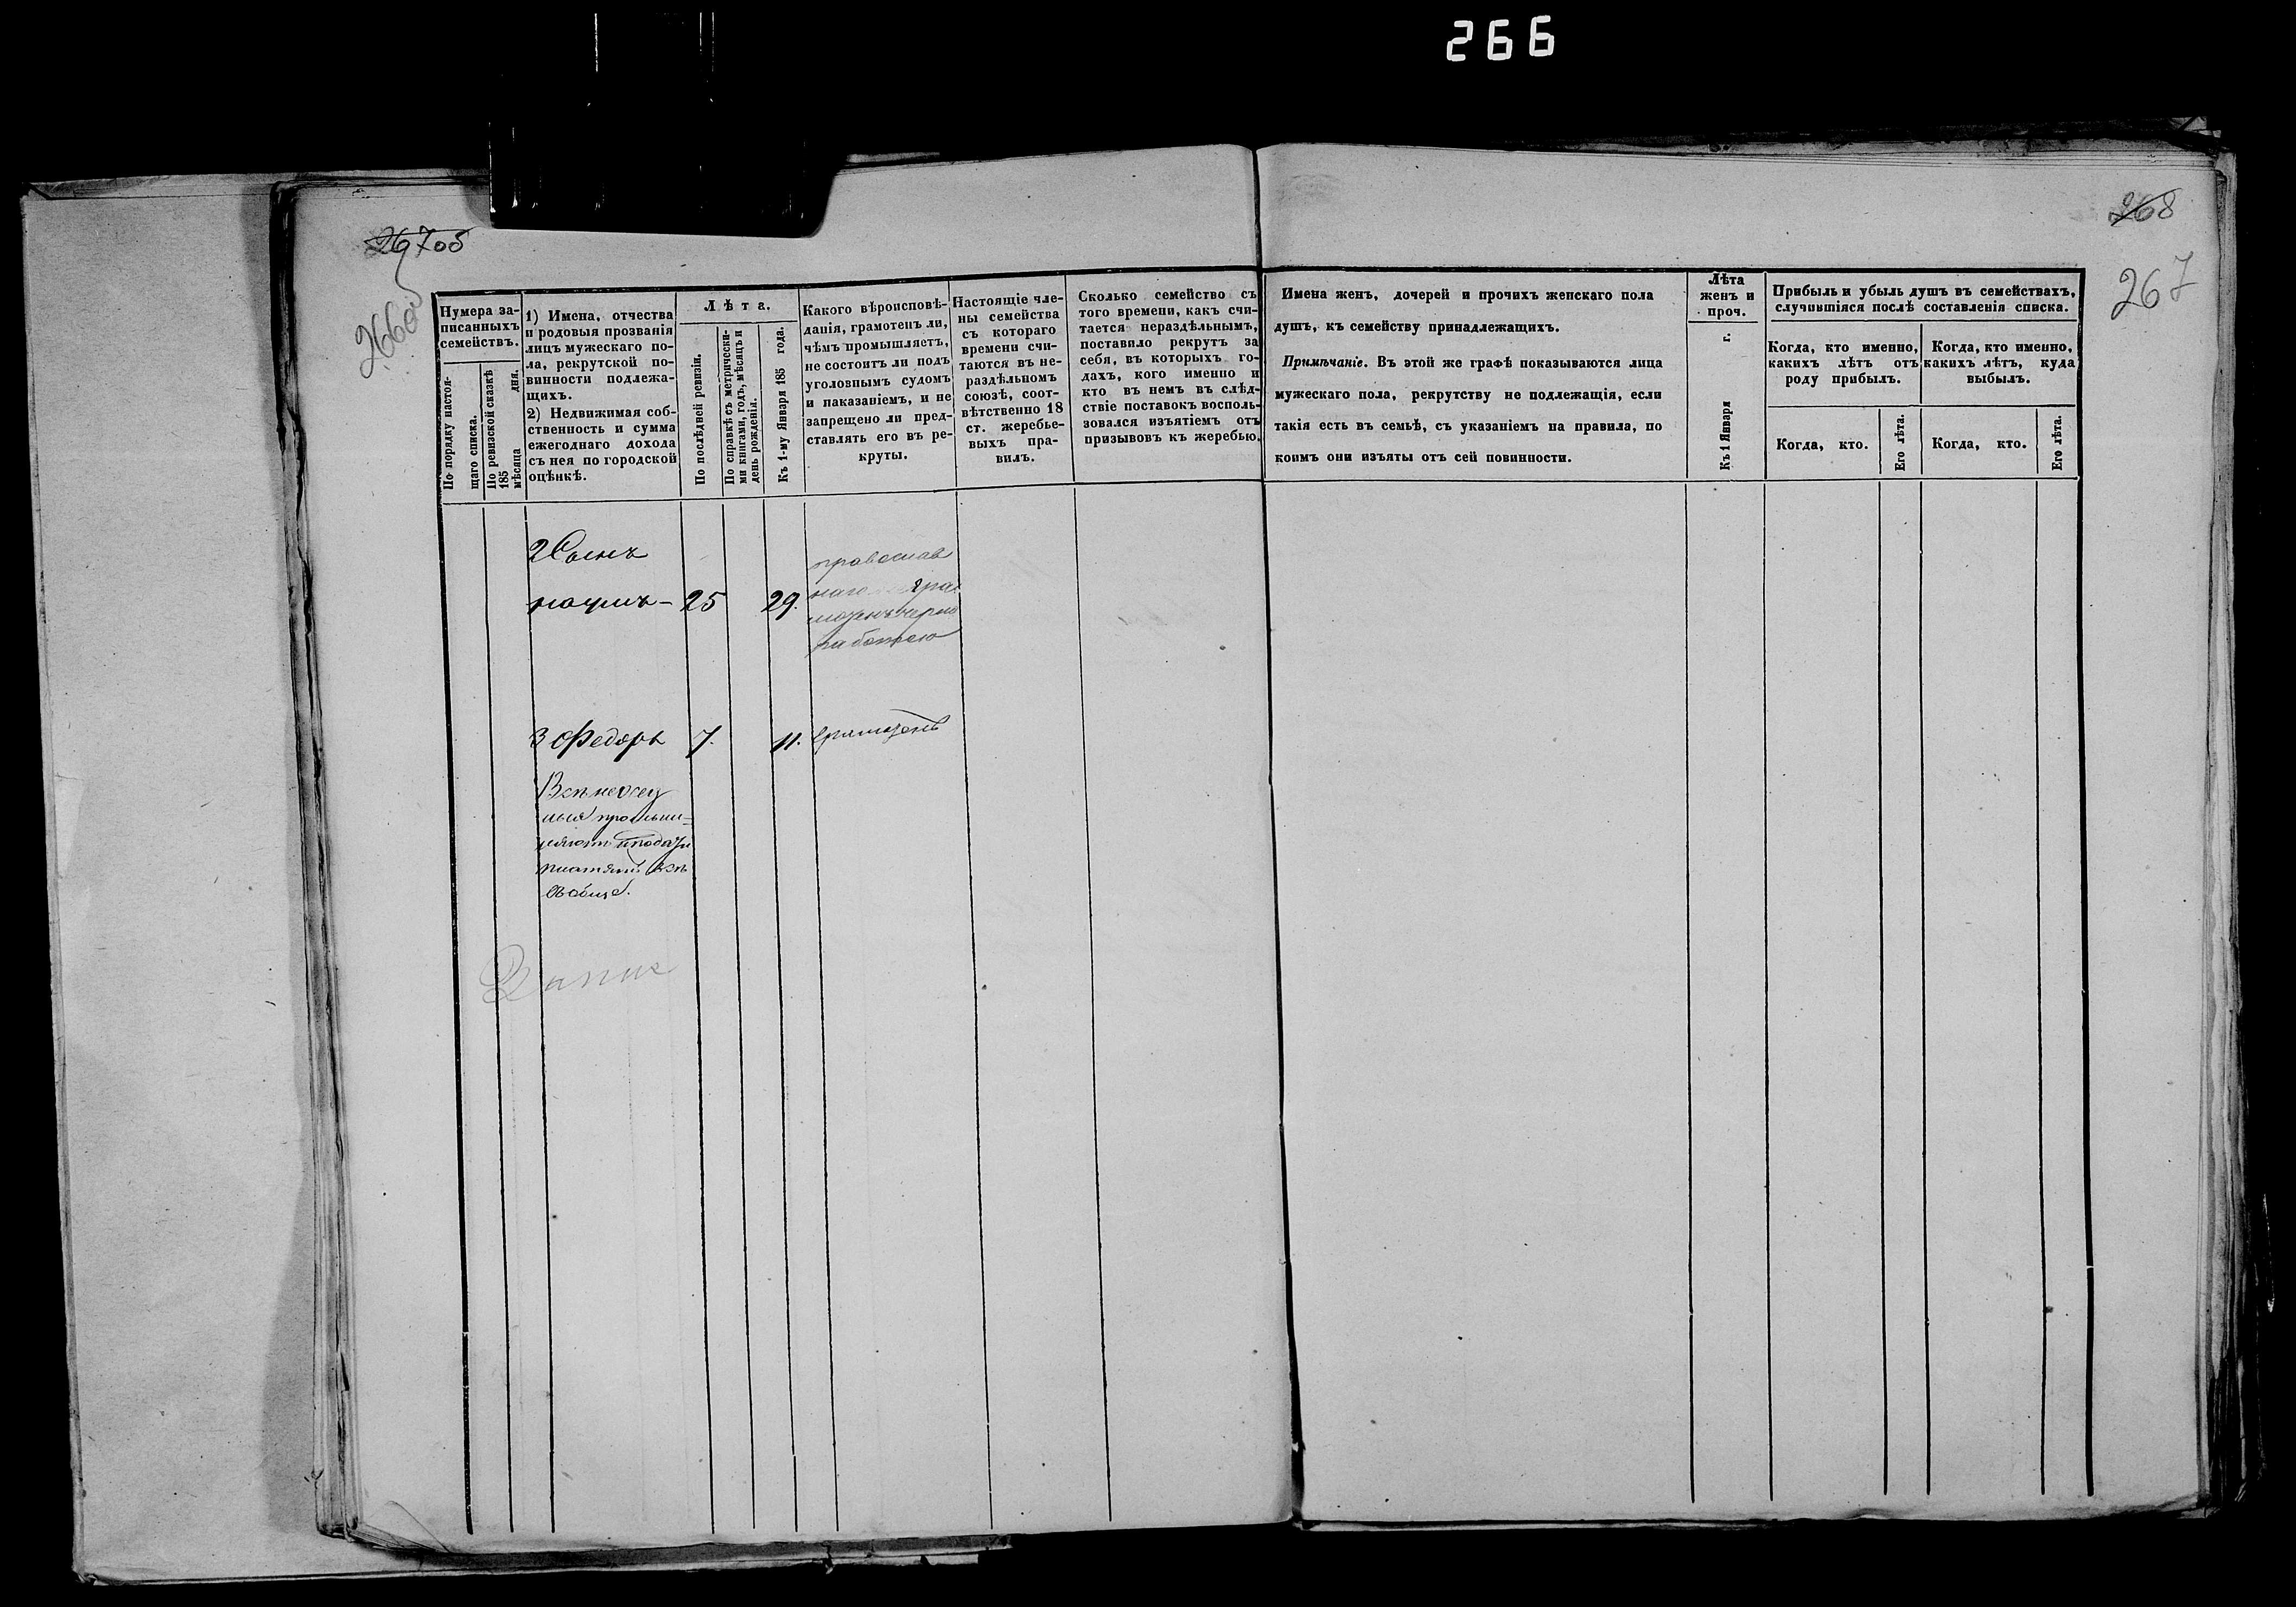 266
267об
266об
268
267
Нумера за-
писанныхъ
семействъ.
По порядку настоя-
щаго списка.
По ревизской сказкѣ
185
мѣсяца дня.
1) Имена, отчества
и родовыя прозванія
лицъ мужескаго по-
ла, рекрутской по-
винности подлежа-
щихъ.
2) Недвижимая соб-
ственность и сумма
ежегоднаго дохода
съ нея по городской
оцѣнкѣ.
Лѣта.
По послѣдней ревизіи.
По справкѣ съ метрически-
ми книгами, годъ, мѣсяцъ и
день рожденія.
Къ 1-му Января 185 года.
Какого вѣроисповѣ-
данія, грамотенъ ли,
чѣмъ промышляетъ,
не состоитъ ли подъ
уголовнымъ судомъ
и наказаніемъ, и не
запрещено ли пред-
ставлять его въ ре-
круты.
Настоящіе чле-
ны семейства
съ котораго
времени счи-
таются въ не-
раздѣльномъ
союзѣ, соот-
вѣтственно 18
ст. жеребье-
выхъ пра-
вилъ.
Сколько семейство съ
того времени, какъ счи-
тается нераздѣльнымъ,
поставило рекрутъ за
себя, въ которыхъ го-
дахъ, кого именно и
кто въ немъ въ слѣд-
ствіе поставокъ восполь-
зовался изъятіемъ отъ
призывовъ къ жеребью.
Имена женъ, дочерей и прочихъ женскаго пола
душъ, къ семейству принадлежащихъ.
Примѣчаніе. Въ этой же графѣ показываются лица
мужескаго пола, рекрутству не подлежащія, если
такія есть въ семьѣ, съ указаніемъ на правила, по
коимъ они изъяты отъ сей повинности.
Лѣта
женъ и
проч.
Къ 1 Января г.
Прибыль и убыль душъ въ семействахъ,
случившіяся послѣ составленія списка.
Когда, кто именно,
какихъ лѣтъ отъ
роду прибылъ.
Когда, кто именно,
какихъ лѣтъ, куда
выбылъ.
Когда, кто.
Его лѣта.
Когда, кто.
Его лѣта.
2 Сынъ
25 29.
православ
наго гра
мотенъ черно
работою
3 Федоръ 7. 11. грамотенъ